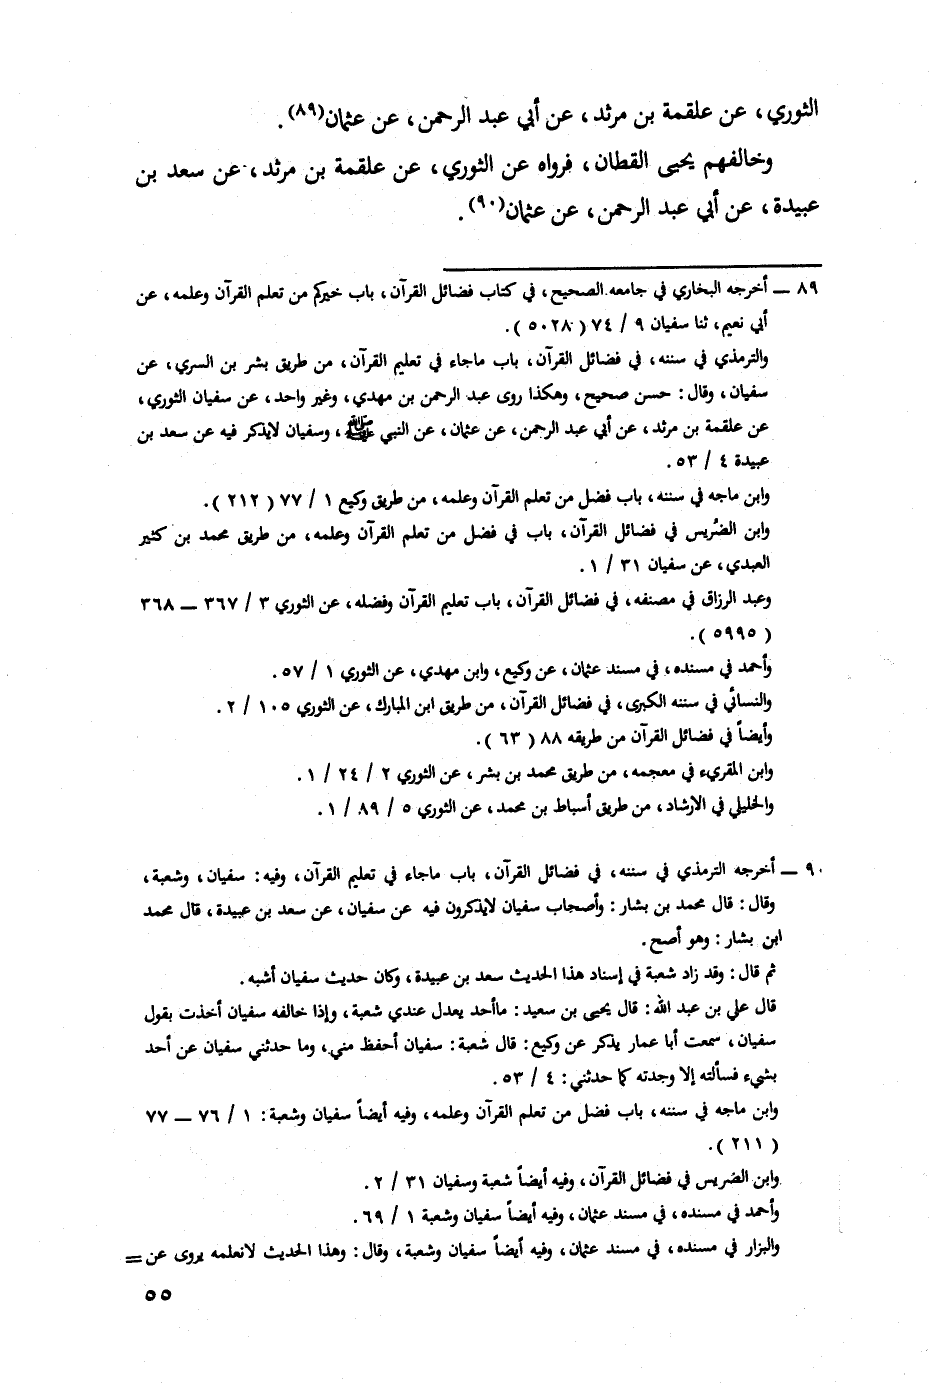 الثوري، عن علقمة بن مرثد، عن أبي عبد الرحمن، عن عثمان(٨٩).
وخالفهم يحيى القطان، فرواه عن الثوري، عن علقمة بن مرثد، عن سعد بن
عبيدة، عن أبي عبد الرحمن، عن عثمان(٩٠).
٨٩ ــ أخرجه البخاري في جامعه الصحيح، في كتاب فضائل القرآن، باب خيركم من تعلم القرآن وعلمه، عن
أبي نعيم، ثنا سفيان ٩ / ٧٤ ( ٥٠٢٨ ).
والترمذي في سننه، في فضائل القرآن، باب ماجاء في تعليم القرآن، من طريق بشر بن السري، عن
سفيان، وقال: حسن صحيح، وهكذا روى عبد الرحمن بن مهدي، وغير واحد، عن سفيان الثوري،
عن علقمة بن مرثد، عن أبي عبد الرحمن، عن عثمان، عن النبي ﷺ، وسفيان لايذكر فيه عن سعد بن
عبيدة ٤ / ٥٣.
وابن ماجه في سننه، باب فضل من تعلم القرآن وعلمه، من طريق وكيع ١ / ٧٧ ( ٢١٢ ).
وابن الضُريس في فضائل القرآن، باب في فضل من تعلم القرآن وعلمه، من طريق محمد بن كثير
العبدي، عن سفيان ٣١ / ١.
وعبد الرزاق في مصنفه، في فضائل القرآن، باب تعليم القرآن وفضله، عن الثوري ٣ / ٣٦٧ ــ ٣٦٨
( ٥٩٩٥ ).
وأحمد في مسنده، في مسند عثمان، عن وكيع، وابن مهدي، عن الثوري ١ / ٥٧.
والنسائي في سننه الكبرى، في فضائل القرآن، من طريق ابن المبارك، عن الثوري ١٠٥ / ٢.
وأيضاً في فضائل القرآن من طريقه ٨٨ ( ٦٣ ).
وابن المقريء في معجمه، من طريق محمد بن بشر، عن الثوري ٢ / ٢٤ / ١.
والخليلي في الارشاد، من طريق أسباط بن محمد، عن الثوري ٥ / ٨٩ / ١.
٩٠ ــ أخرجه الترمذي في سننه، في فضائل القرآن، باب ماجاء في تعليم القرآن، وفيه: سفيان، وشعبة،
وقال: قال محمد بن بشار: وأصحاب سفيان لايذكرون فيه عن سفيان، عن سعد بن عبيدة، قال محمد
ابن بشار: وهو أصح.
ثم قال: وقد زاد شعبة في إسناد هذا الحديث سعد بن عبيدة، وكان حديث سفيان أشبه.
قال علي بن عبد الله: قال يحيى بن سعيد: ماأحد يعدل عندي شعبة، وإذا خالفه سفيان أخذت بقول
سفيان، سمعت أبا عمار يذكر عن وكيع: قال شعبة: سفيان أحفظ مني، وما حدثني سفيان عن أحد
بشيء فسألته إلا وجدته كما حدثني: ٤ / ٥٣.
وابن ماجه في سننه، باب فضل من تعلم القرآن وعلمه، وفيه أيضاً سفيان وشعبة: ١ / ٧٦ ــ ٧٧
( ٢١١ ).
وابن الضريس في فضائل القرآن، وفيه أيضاً شعبة وسفيان ٣١ / ٢.
وأحمد في مسنده، في مسند عثمان، وفيه أيضاً سفيان وشعبة ١ / ٦٩.
والبزار في مسنده، في مسند عثمان، وفيه أيضاً سفيان وشعبة، وقال: وهذا الحديث لانعلمه يروى عن =
٥٥